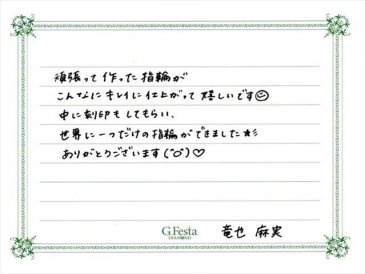 頑張って作った指輪が
こんなにキレイに仕上がって嬉しいです☺
中に刻印もしてもらい、
世界に一つだけの指輪ができました★彡
ありがとうございます(^o^)♡
G.Festa
DIAMOND
竜也 麻実